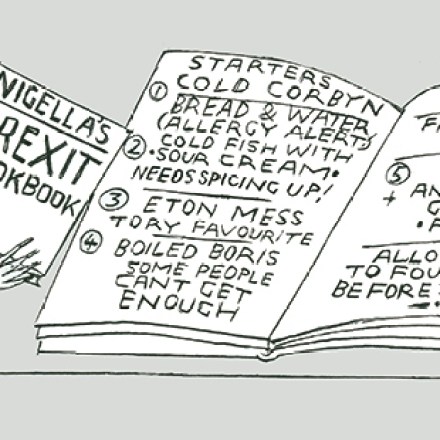 NIGELLA'S
BREXIT
COOKBOOK
STARTERS
① COLD CORBYN
BREAD & WATER
(ALLERGY ALERT)
② COLD FISH WITH
• SOUR CREAM •
NEEDS SPICING UP!
③ ETON MESS
TORY FAVOURITE
④ BOILED BORIS
SOME PEOPLE
CANT GET
ENOUGH
⑤
+
ALLO
TO FOU
BEFORE